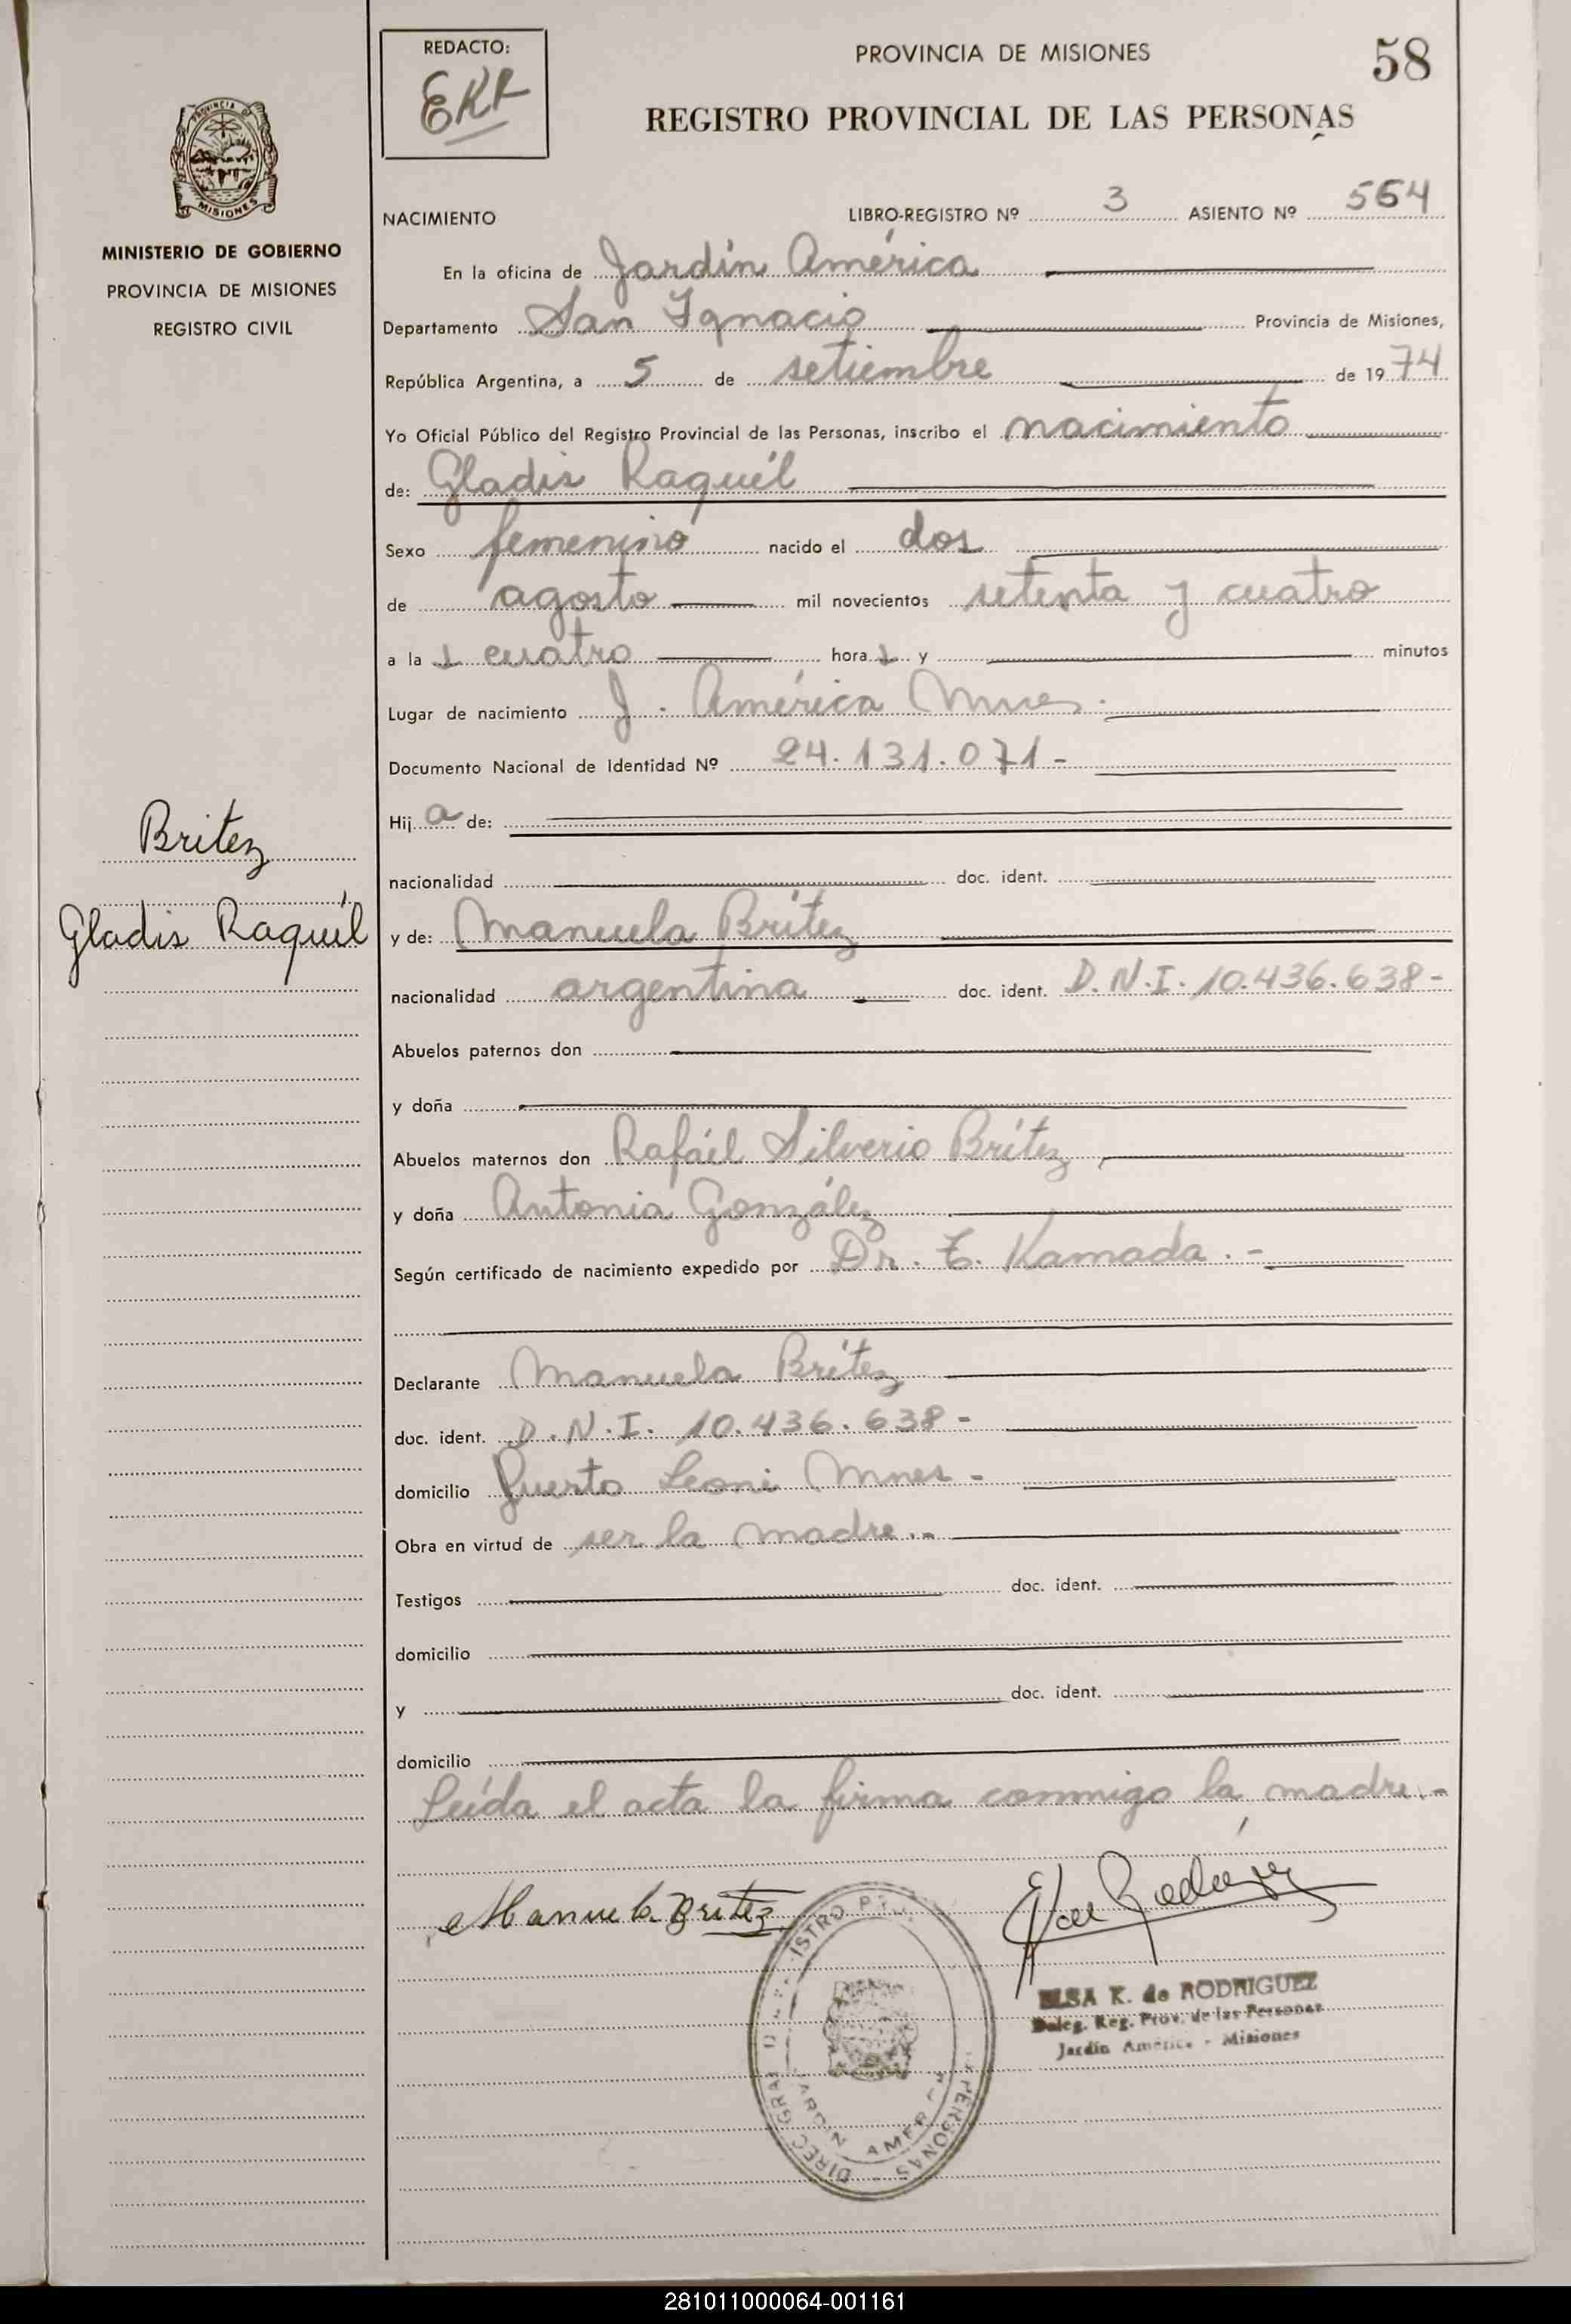 REDACTO:
EKR
PROVINCIA DE MISIONES
58
REGISTRO PROVINCIAL DE LAS PERSONAS
MISIONES
MINISTERIO DE GOBIERNO
PROVINCIA DE MISIONES
REGISTRO CIVIL
NACIMIENTO LIBRO-REGISTRO Nº 3 ASIENTO Nº 564
En la oficina de Jardín América
Departamento San Ignacio Provincia de Misiones,
República Argentina, a 5 de setiembre de 1974
Yo Oficial Público del Registro Provincial de las Personas, inscribo el nacimiento
de: Gladis Raquél
Sexo femenino nacido el dos
de agosto mil novecientos setenta y cuatro
a la s cuatro hora s y minutos
Lugar de nacimiento J. América Mnes.
Documento Nacional de Identidad Nº 24.131.071-
Hij a de:
nacionalidad doc. ident.
Britez
Gladis Raquél
y de: Manuela Brítez
nacionalidad argentina doc. ident. D.N.I. 10.436.638-
Abuelos paternos don
y doña
Abuelos maternos don Rafaél Silverio Brítez
y doña Antonia González
Según certificado de nacimiento expedido por Dr. T. Kamada.-
Declarante Manuela Brítez
doc. ident. D.N.I. 10.436.638-
domicilio Puerto Leoni Mnes-
Obra en virtud de ser la madre.-
Testigos doc. ident.
domicilio
y doc. ident.
domicilio
Leída el acta la firma conmigo la madre.-
Manuela Britez
ELSA K. de RODRIGUEZ
Deleg. Reg. Prov. de las Personas
Jardín América - Misiones
281011000064-001161